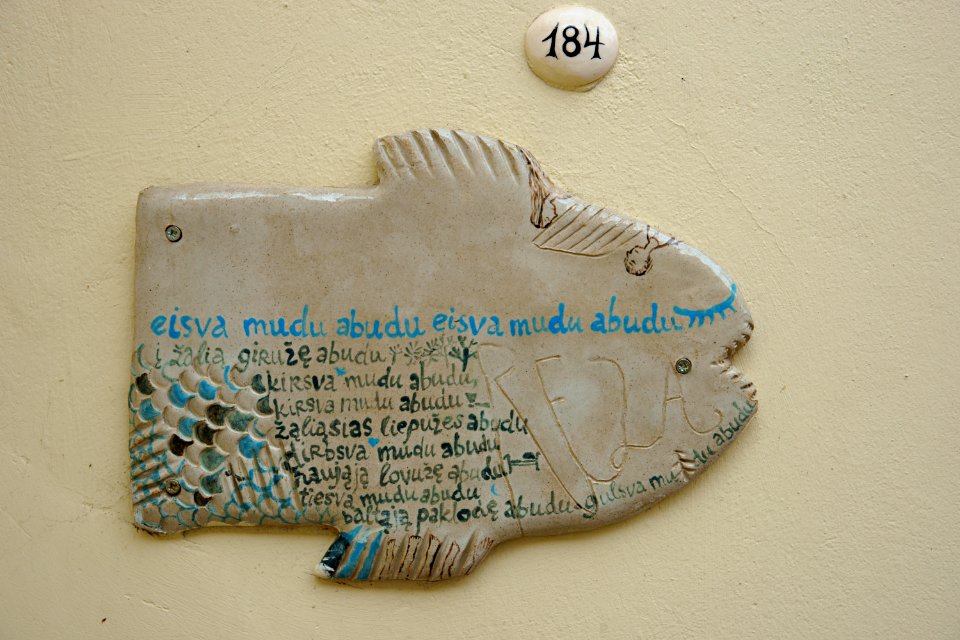 184
eisva mudu abudu eisva mudu abudu
į žalią giružę abudu
skirsva mudu abudu,
kirsva mudu abudu
žaliąsias liepužes abudu
dirbsva mudu abudu
naująją lovužę abudu
tiesva mudu abudu
baltąją paklodę abudu gulsva mudu abudu
REZA